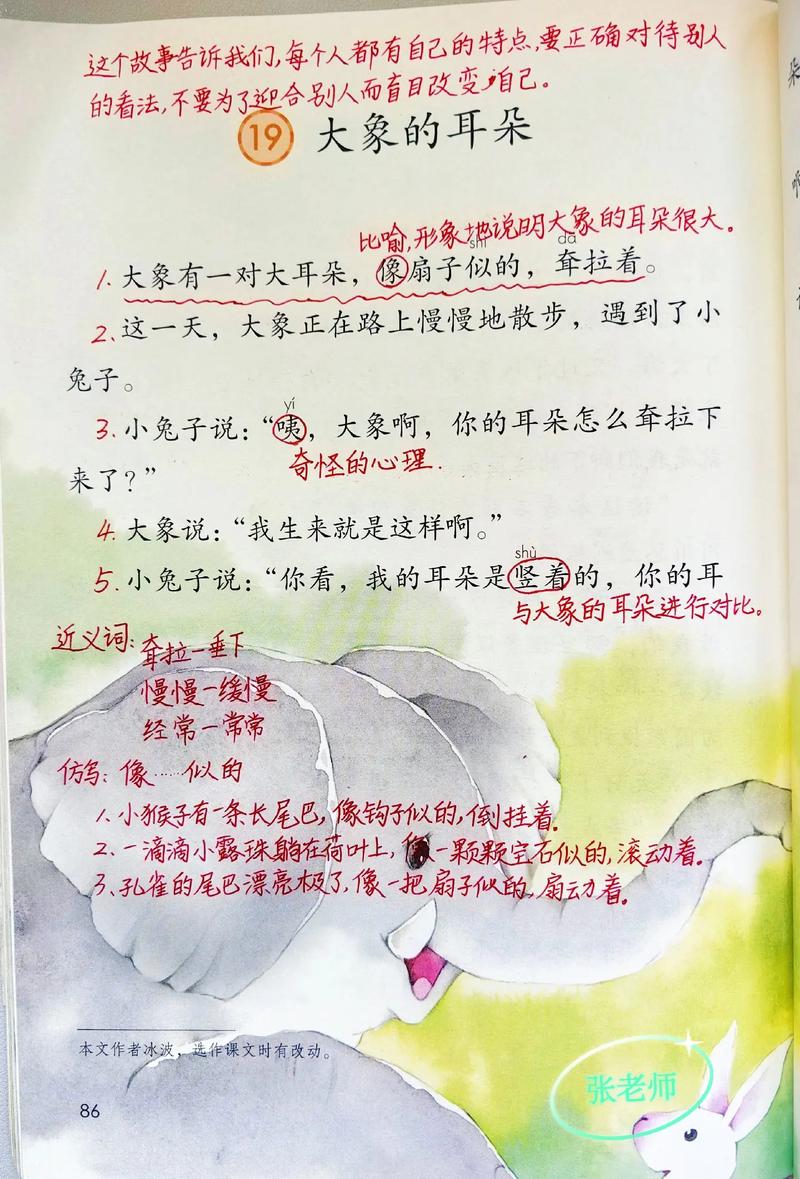 这个故事告诉我们,每个人都有自己的特点,要正确对待别人
的看法,不要为了迎合别人而盲目改变自己。
19 大象的耳朵
比喻,形象地说明大象的耳朵很大。
shì dā
1. 大象有一对大耳朵，像扇子似的，耷拉着。
2. 这一天，大象正在路上慢慢地散步，遇到了小
兔子。
yí
3. 小兔子说：“咦，大象啊，你的耳朵怎么耷拉下
奇怪的心理.
来了？”
4. 大象说：“我生来就是这样啊。”
shù
5. 小兔子说：“你看，我的耳朵是竖着的，你的耳
与大象的耳朵进行对比。
近义词: 耷拉—垂下
慢慢—缓慢
经常—常常
仿写: 像……似的
1、小猴子有一条长尾巴,像钩子似的,倒挂着.
2、一滴滴小露珠躺在荷叶上,像一颗颗宝石似的,滚动着.
3、孔雀的尾巴漂亮极了,像一把扇子似的,扇动着.
本文作者冰波，选作课文时有改动。
86
张老师